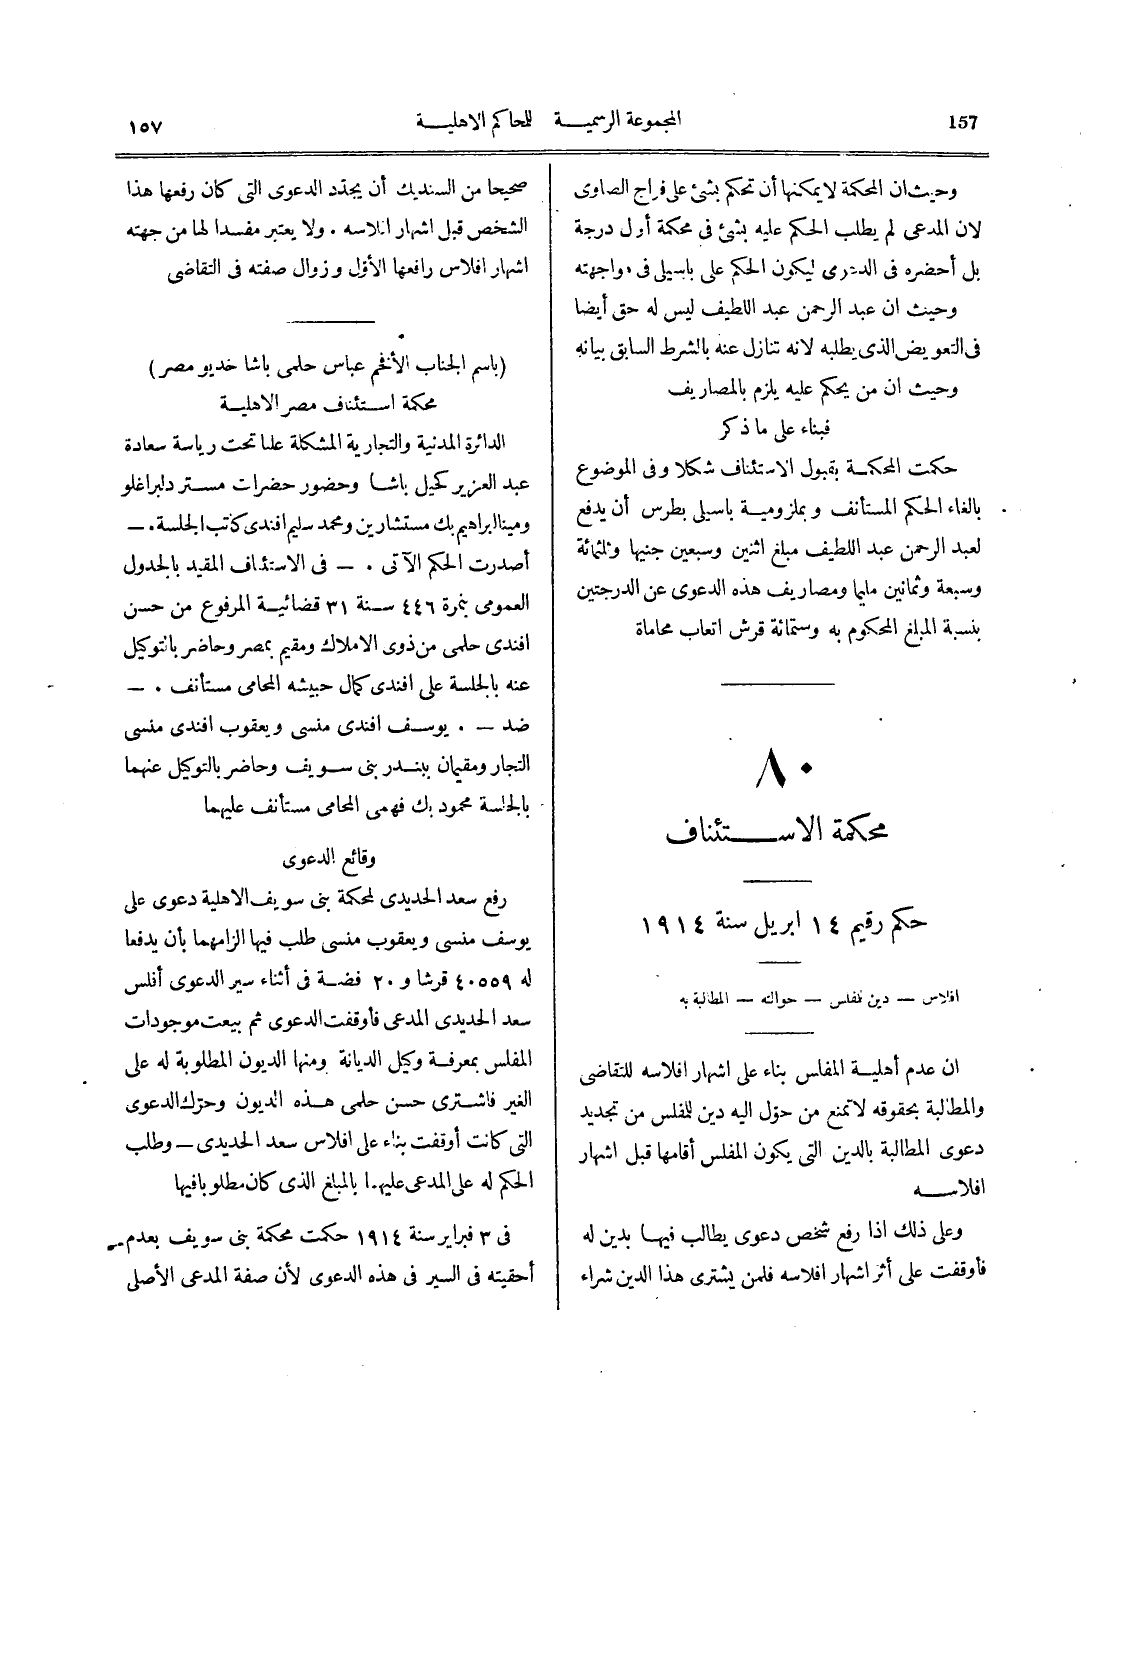 157 المجموعة الرسمية للمحاكم الاهلية ١٥٧
وحيث ان المحكمة لا يمكنها أن تحكم بشئ على فراج الصاوى
لان المدعى لم يطلب الحكم عليه بشئ فى محكمة أول درجة
بل أحضره فى الدعوى ليكون الحكم على باسيلى فى مواجهته
وحيث ان عبد الرحمن عبد اللطيف ليس له حق أيضا
فى التعويض الذى يطلبه لانه تنازل عنه بالشرط السابق بيانه
وحيث ان من يحكم عليه يلزم بالمصاريف
فبناء على ما ذكر
حكمت المحكمة بقبول الاستئناف شكلا وفى الموضوع
بالغاء الحكم المستأنف وبملزومية باسيلى بطرس أن يدفع
لعبد الرحمن عبد اللطيف مبلغ اثنين وسبعين جنيها وثلثمائة
وسبعة وثمانين مليما ومصاريف هذه الدعوى عن الدرجتين
بنسبة المبلغ المحكوم به وستمائة قرش اتعاب محاماة
٨٠
محكمة الاستئناف
حكم رقيم ١٤ ابريل سنة ١٩١٤
افلاس — دين للمفلس — حوالته — المطالبة به
ان عدم أهلية المفلس بناء على اشهار افلاسه للتقاضى
والمطالبة بحقوقه لا تمنع من حوّل اليه دين للمفلس من تجديد
دعوى المطالبة بالدين التى يكون المفلس أقامها قبل اشهار
افلاسه
وعلى ذلك اذا رفع شخص دعوى يطالب فيها بدين له
فأوقفت على أثر اشهار افلاسه فلمن يشترى هذا الدين شراء
صحيحا من السنديك أن يجدّد الدعوى التى كان رفعها هذا
الشخص قبل اشهار افلاسه . ولا يعتبر مفسدا لها من جهته
اشهار افلاس رافعها الأوّل وزوال صفته فى التقاضى
(باسم الجناب الأفخم عباس حلمى باشا خديو مصر)
محكمة استئناف مصر الاهلية
الدائرة المدنية والتجارية المشكلة علنا تحت رياسة سعادة
عبد العزيز كحيل باشا وحضور حضرات مستر دلبراغلو
ومينا ابراهيم بك مستشارين ومحمد سليم افندى كاتب الجلسة . —
أصدرت الحكم الآتى . — فى الاستئناف المقيد بالجدول
العمومى بنمرة ٤٤٦ سنة ٣١ قضائية المرفوع من حسن
افندى حلمى من ذوى الاملاك ومقيم بمصر وحاضر بالتوكيل
عنه بالجلسة على افندى كمال حبيشه المحامى مستأنف . —
ضد — . يوسف افندى منسى ويعقوب افندى منسى
التجار ومقيمان ببندر بنى سويف وحاضر بالتوكيل عنهما
بالجلسة محمود بك فهمى المحامى مستأنف عليهما
وقائع الدعوى
رفع سعد الحديدى لمحكمة بنى سويف الاهلية دعوى على
يوسف منسى ويعقوب منسى طلب فيها الزامهما بأن يدفعا
له ٤٠٥٥٩ قرشا و ٢٠ فضة فى أثناء سير الدعوى أفلس
سعد الحديدى المدعى فأوقفت الدعوى ثم بيعت موجودات
المفلس بمعرفة وكيل الديانة ومنها الديون المطلوبة له على
الغير فاشترى حسن حلمى هذه الديون وحرّك الدعوى
التى كانت أوقفت بناء على افلاس سعد الحديدى — وطلب
الحكم له على المدعى عليهما بالمبلغ الذى كان مطلوبا فيها
فى ٣ فبراير سنة ١٩١٤ حكمت محكمة بنى سويف بعدم
أحقيته فى السير فى هذه الدعوى لأن صفة المدعى الأصلى